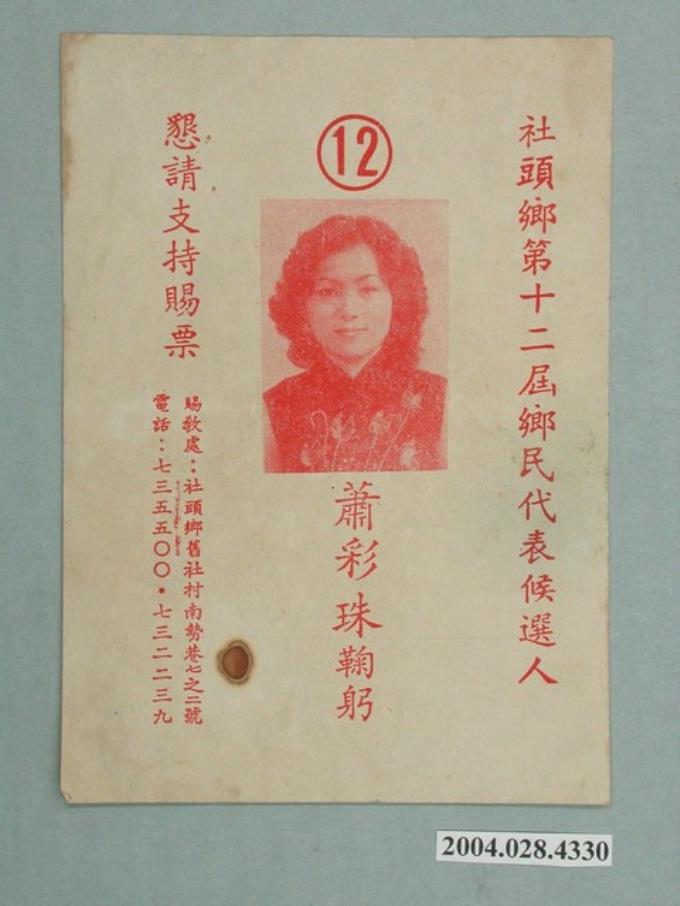 社頭鄉第十二屆鄉民代表候選人
12
蕭彩珠鞠躬
懇請支持賜票
賜教處：社頭鄉舊社村南勢巷七之二號
電話：七三五五〇〇・七三二二三九
2004.028.4330